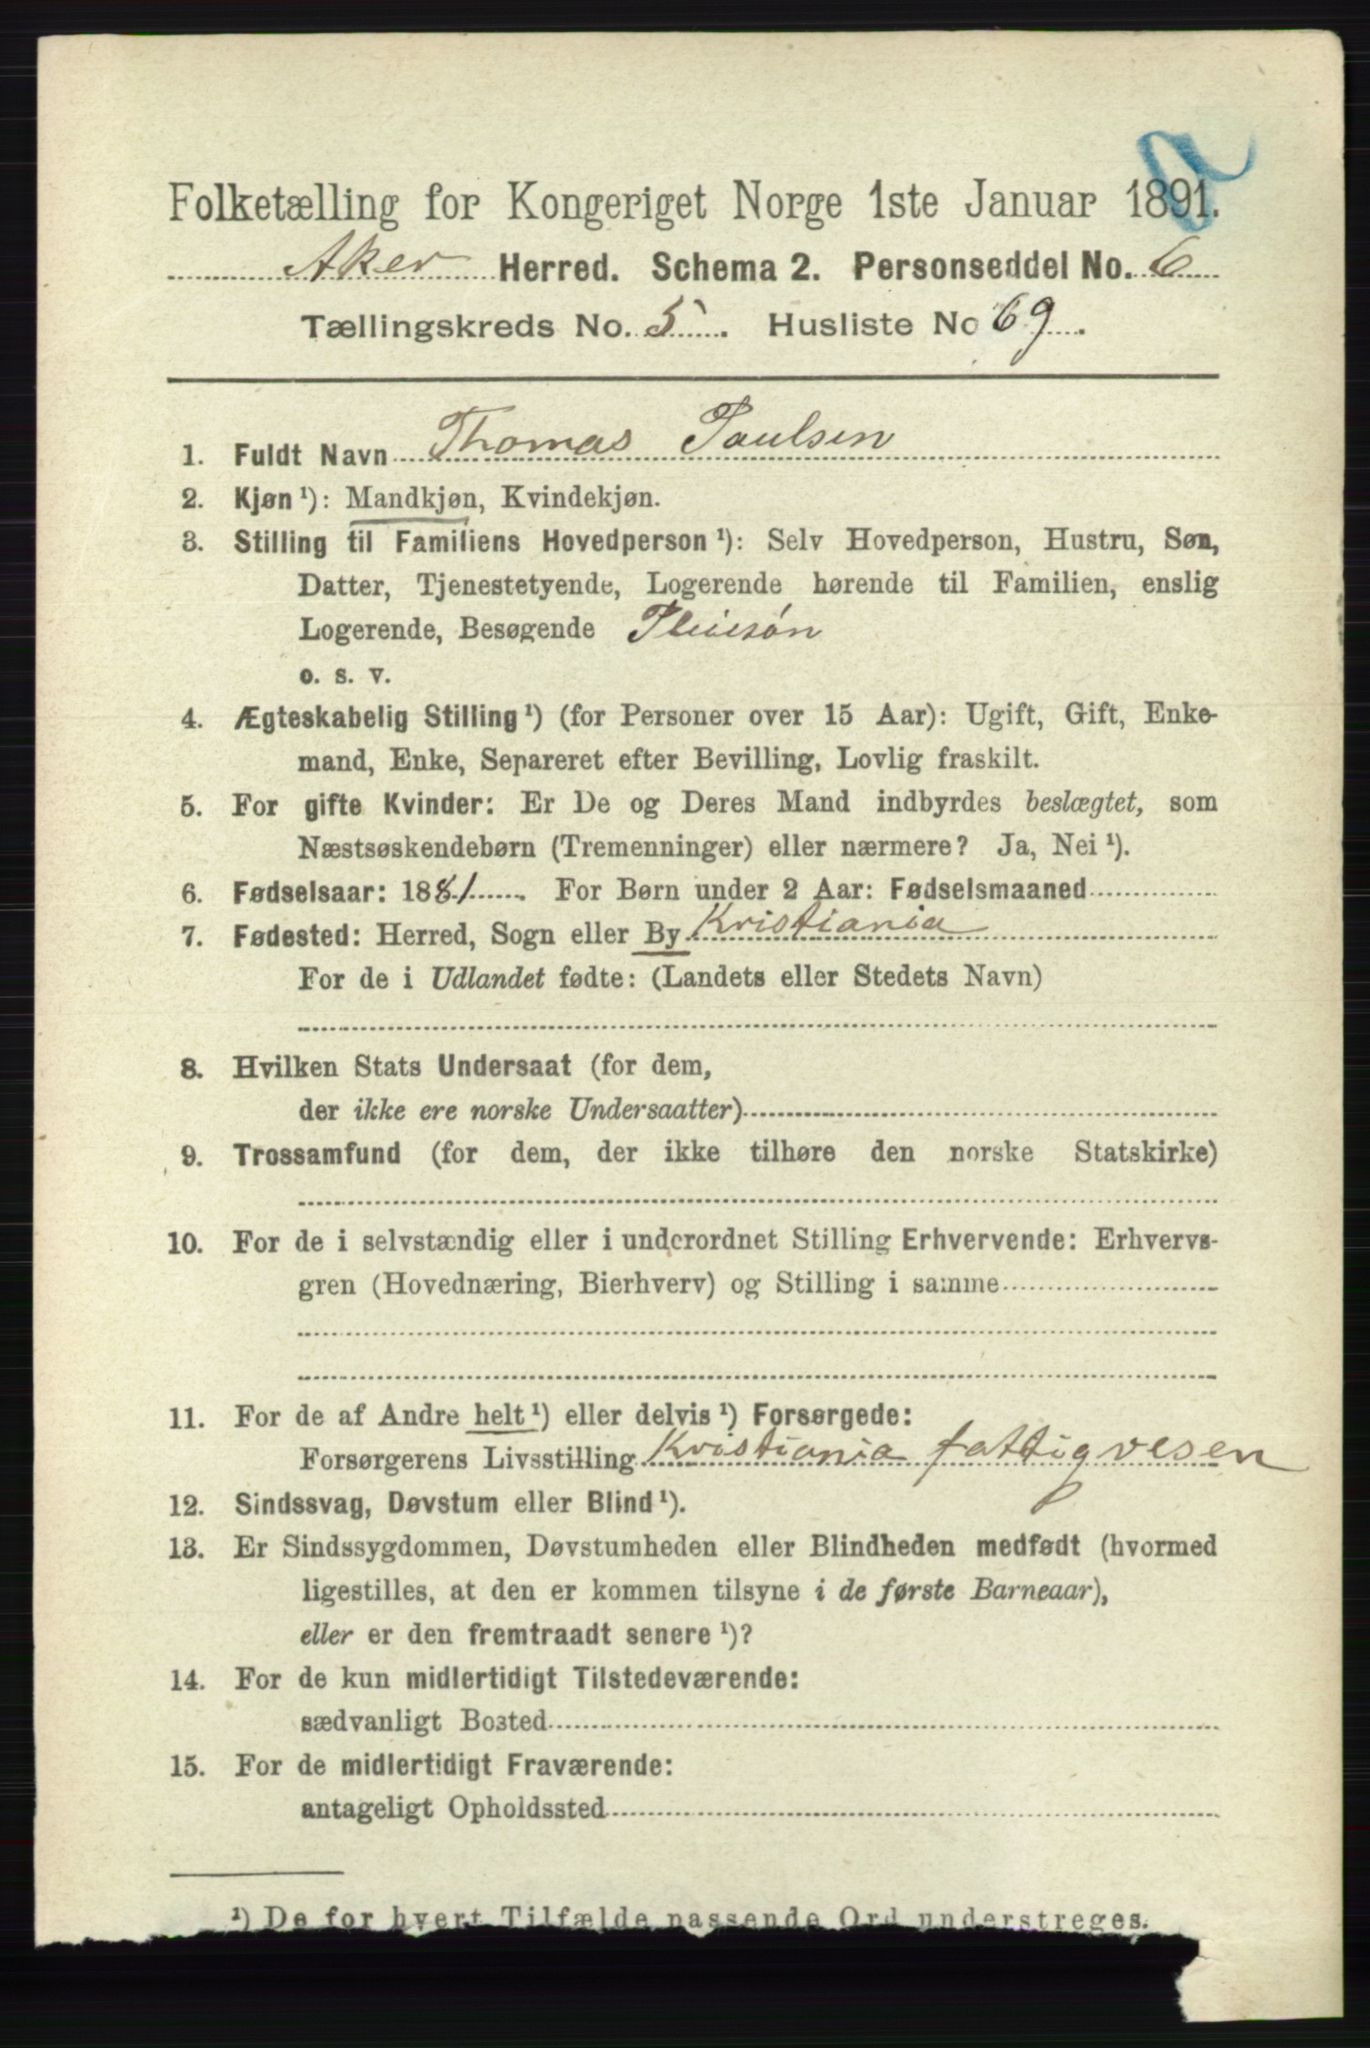 Folketælling for Kongeriget Norge 1ste Januar 1891.
Aker Herred. Schema 2. Personseddel No. 6
Tællingskreds No. 5. Husliste No 69.
1. Fuldt Navn Thomas Paulsen
2. Kjøn ¹): Mandkjøn, Kvindekjøn.
3. Stilling til Familiens Hovedperson ¹): Selv Hovedperson, Hustru, Søn,
Datter, Tjenestetyende, Logerende hørende til Familien, enslig
Logerende, Besøgende Pleiesøn
o. s. v.
4. Ægteskabelig Stilling ¹) (for Personer over 15 Aar): Ugift, Gift, Enke-
mand, Enke, Separeret efter Bevilling, Lovlig fraskilt.
5. For gifte Kvinder: Er De og Deres Mand indbyrdes beslægtet, som
Næstsøskendebørn (Tremenninger) eller nærmere? Ja, Nei ¹).
6. Fødselsaar: 1881. For Børn under 2 Aar: Fødselsmaaned
7. Fødested: Herred, Sogn eller By Kristiania
For de i Udlandet fødte: (Landets eller Stedets Navn)
8. Hvilken Stats Undersaat (for dem,
der ikke ere norske Undersaatter)
9. Trossamfund (for dem, der ikke tilhøre den norske Statskirke)
10. For de i selvstændig eller i underordnet Stilling Erhvervende: Erhvervs-
gren (Hovednæring, Bierhverv) og Stilling i samme
11. For de af Andre helt ¹) eller delvis ¹) Forsørgede:
Forsørgerens Livsstilling Kristiania fattigvesen
12. Sindssvag, Døvstum eller Blind ¹).
13. Er Sindssygdommen, Døvstumheden eller Blindheden medfødt (hvormed
ligestilles, at den er kommen tilsyne i de første Barneaar),
eller er den fremtraadt senere ¹)?
14. For de kun midlertidigt Tilstedeværende:
sædvanligt Bosted
15. For de midlertidigt Fraværende:
antageligt Opholdssted
¹) De for hvert Tilfælde passende Ord understreges.